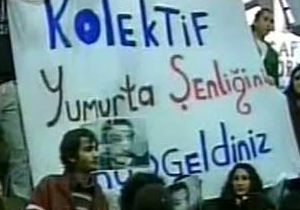 KOLEKTİF
Yumurta Şenliğin
GELDİNİZ